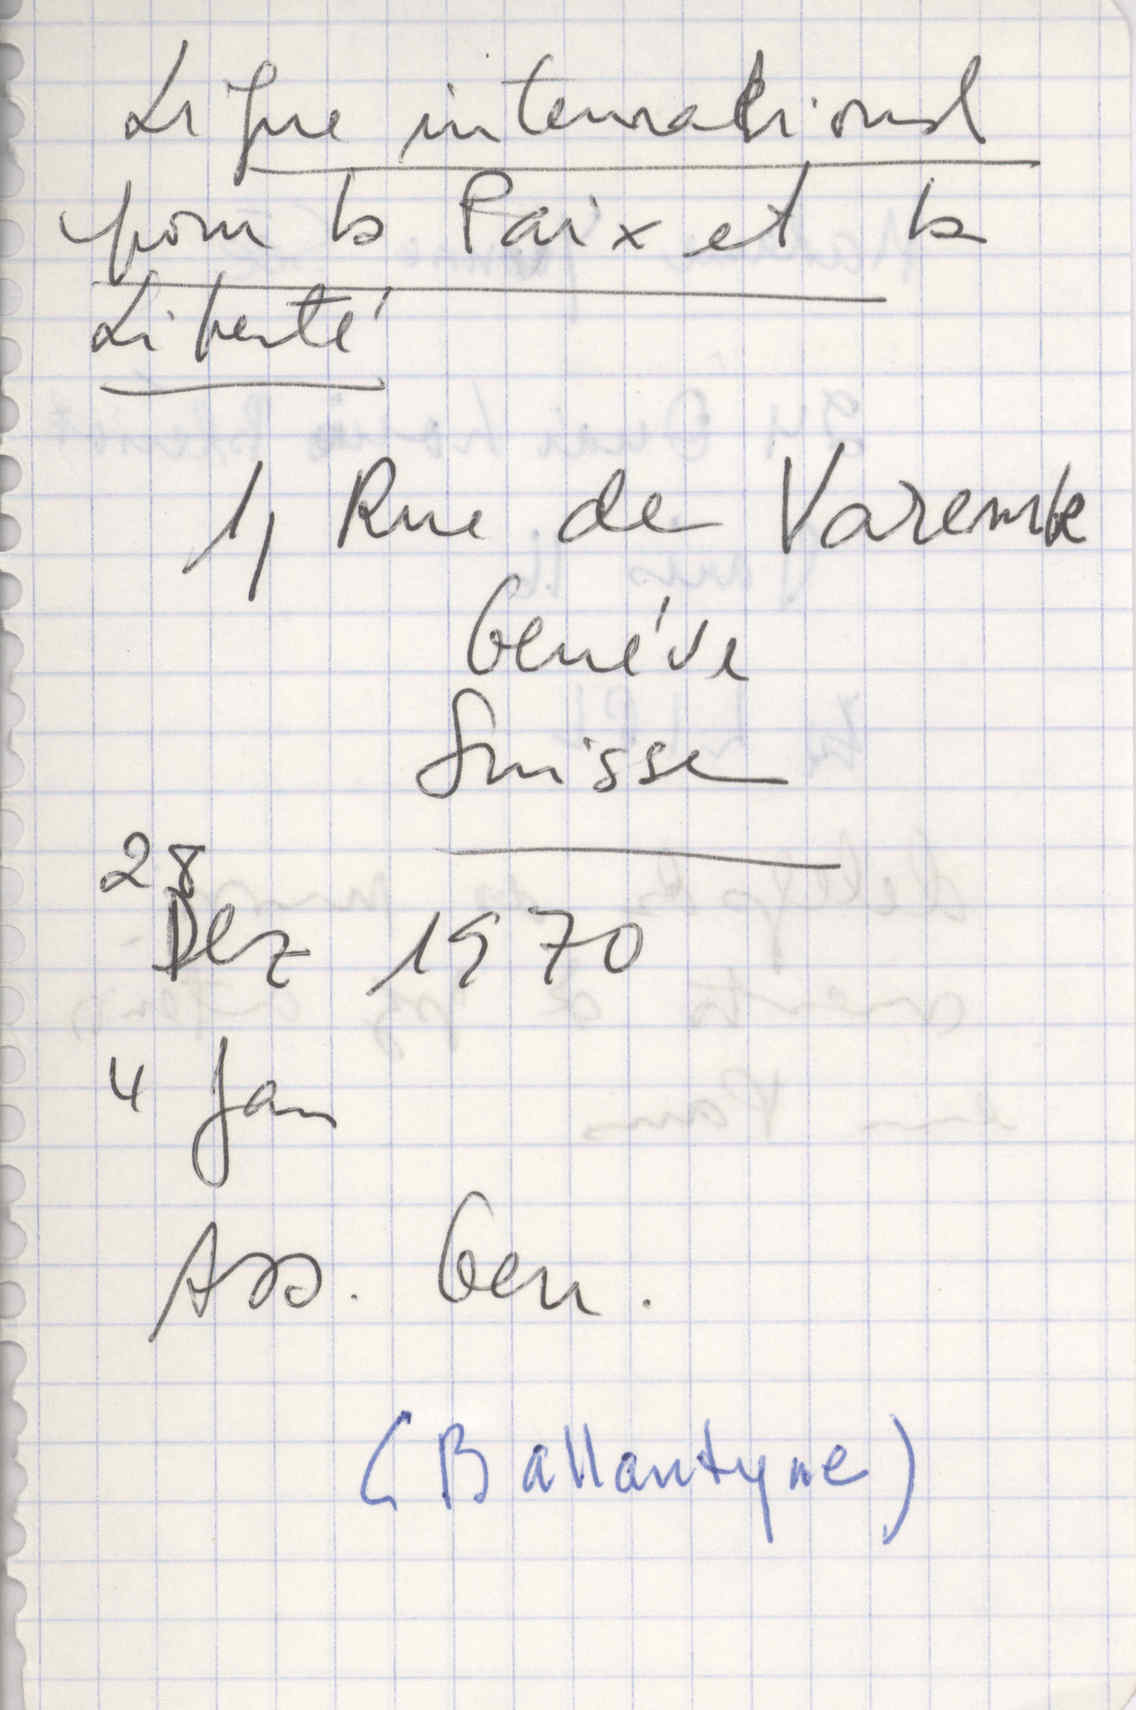 Ligue international
pour la Paix et la
Liberté
1, Rue de Varembe
Genéve
Suisse
28
Dez 1970
4 Jan
Ass. Gen.
(Ballantyne)